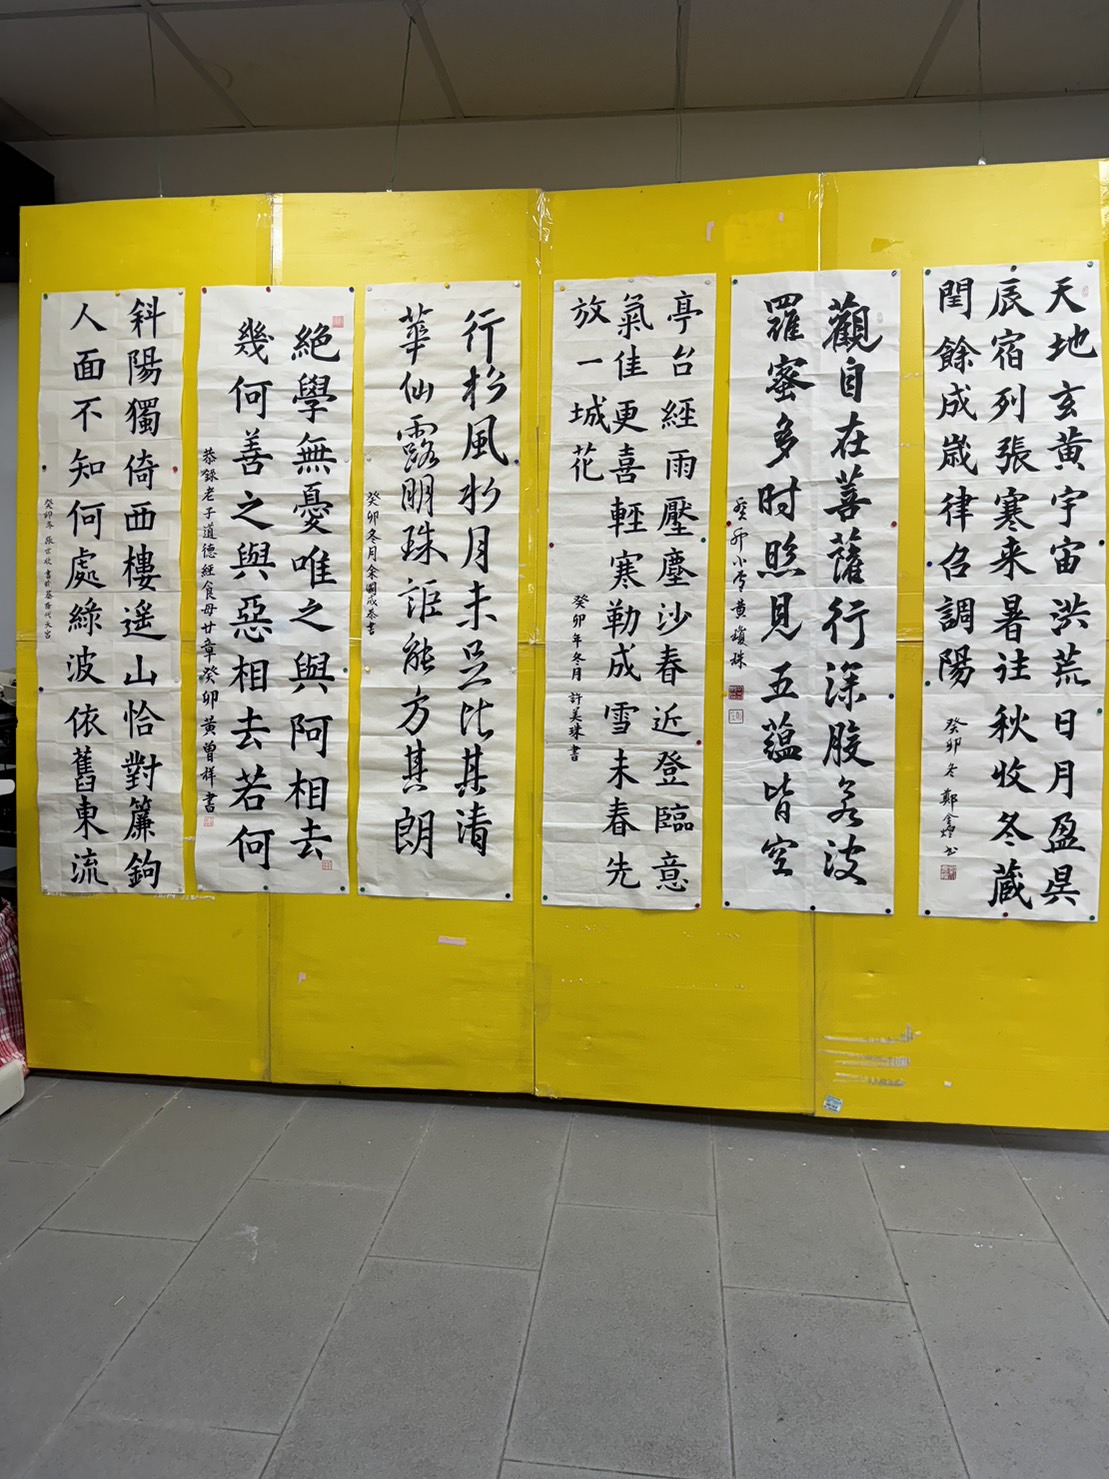 天地玄黃宇宙洪荒日月盈昃
辰宿列張寒来暑往秋收冬藏
閏餘成歲律召調陽
癸卯冬 鄭金煌書
觀自在菩薩行深般若波
羅蜜多时照見五蘊皆空
癸卯小雪黄瓊珠
亭台經雨壓塵沙春近登臨意
氣佳更喜輕寒勒成雪未春先
放一城花
癸卯年冬月 許美珠書
行松風水月未足比其清
華仙露明珠詎能方其朗
癸卯冬月余國成恭書
絶學無憂唯之與阿相去
幾何善之與惡相去若何
恭錄老子道德經食母廿章癸卯黄曾祥書
斜陽獨倚西樓遥山恰對簾鉤
人面不知何處綠波依舊東流
癸卯冬 張世欣書於